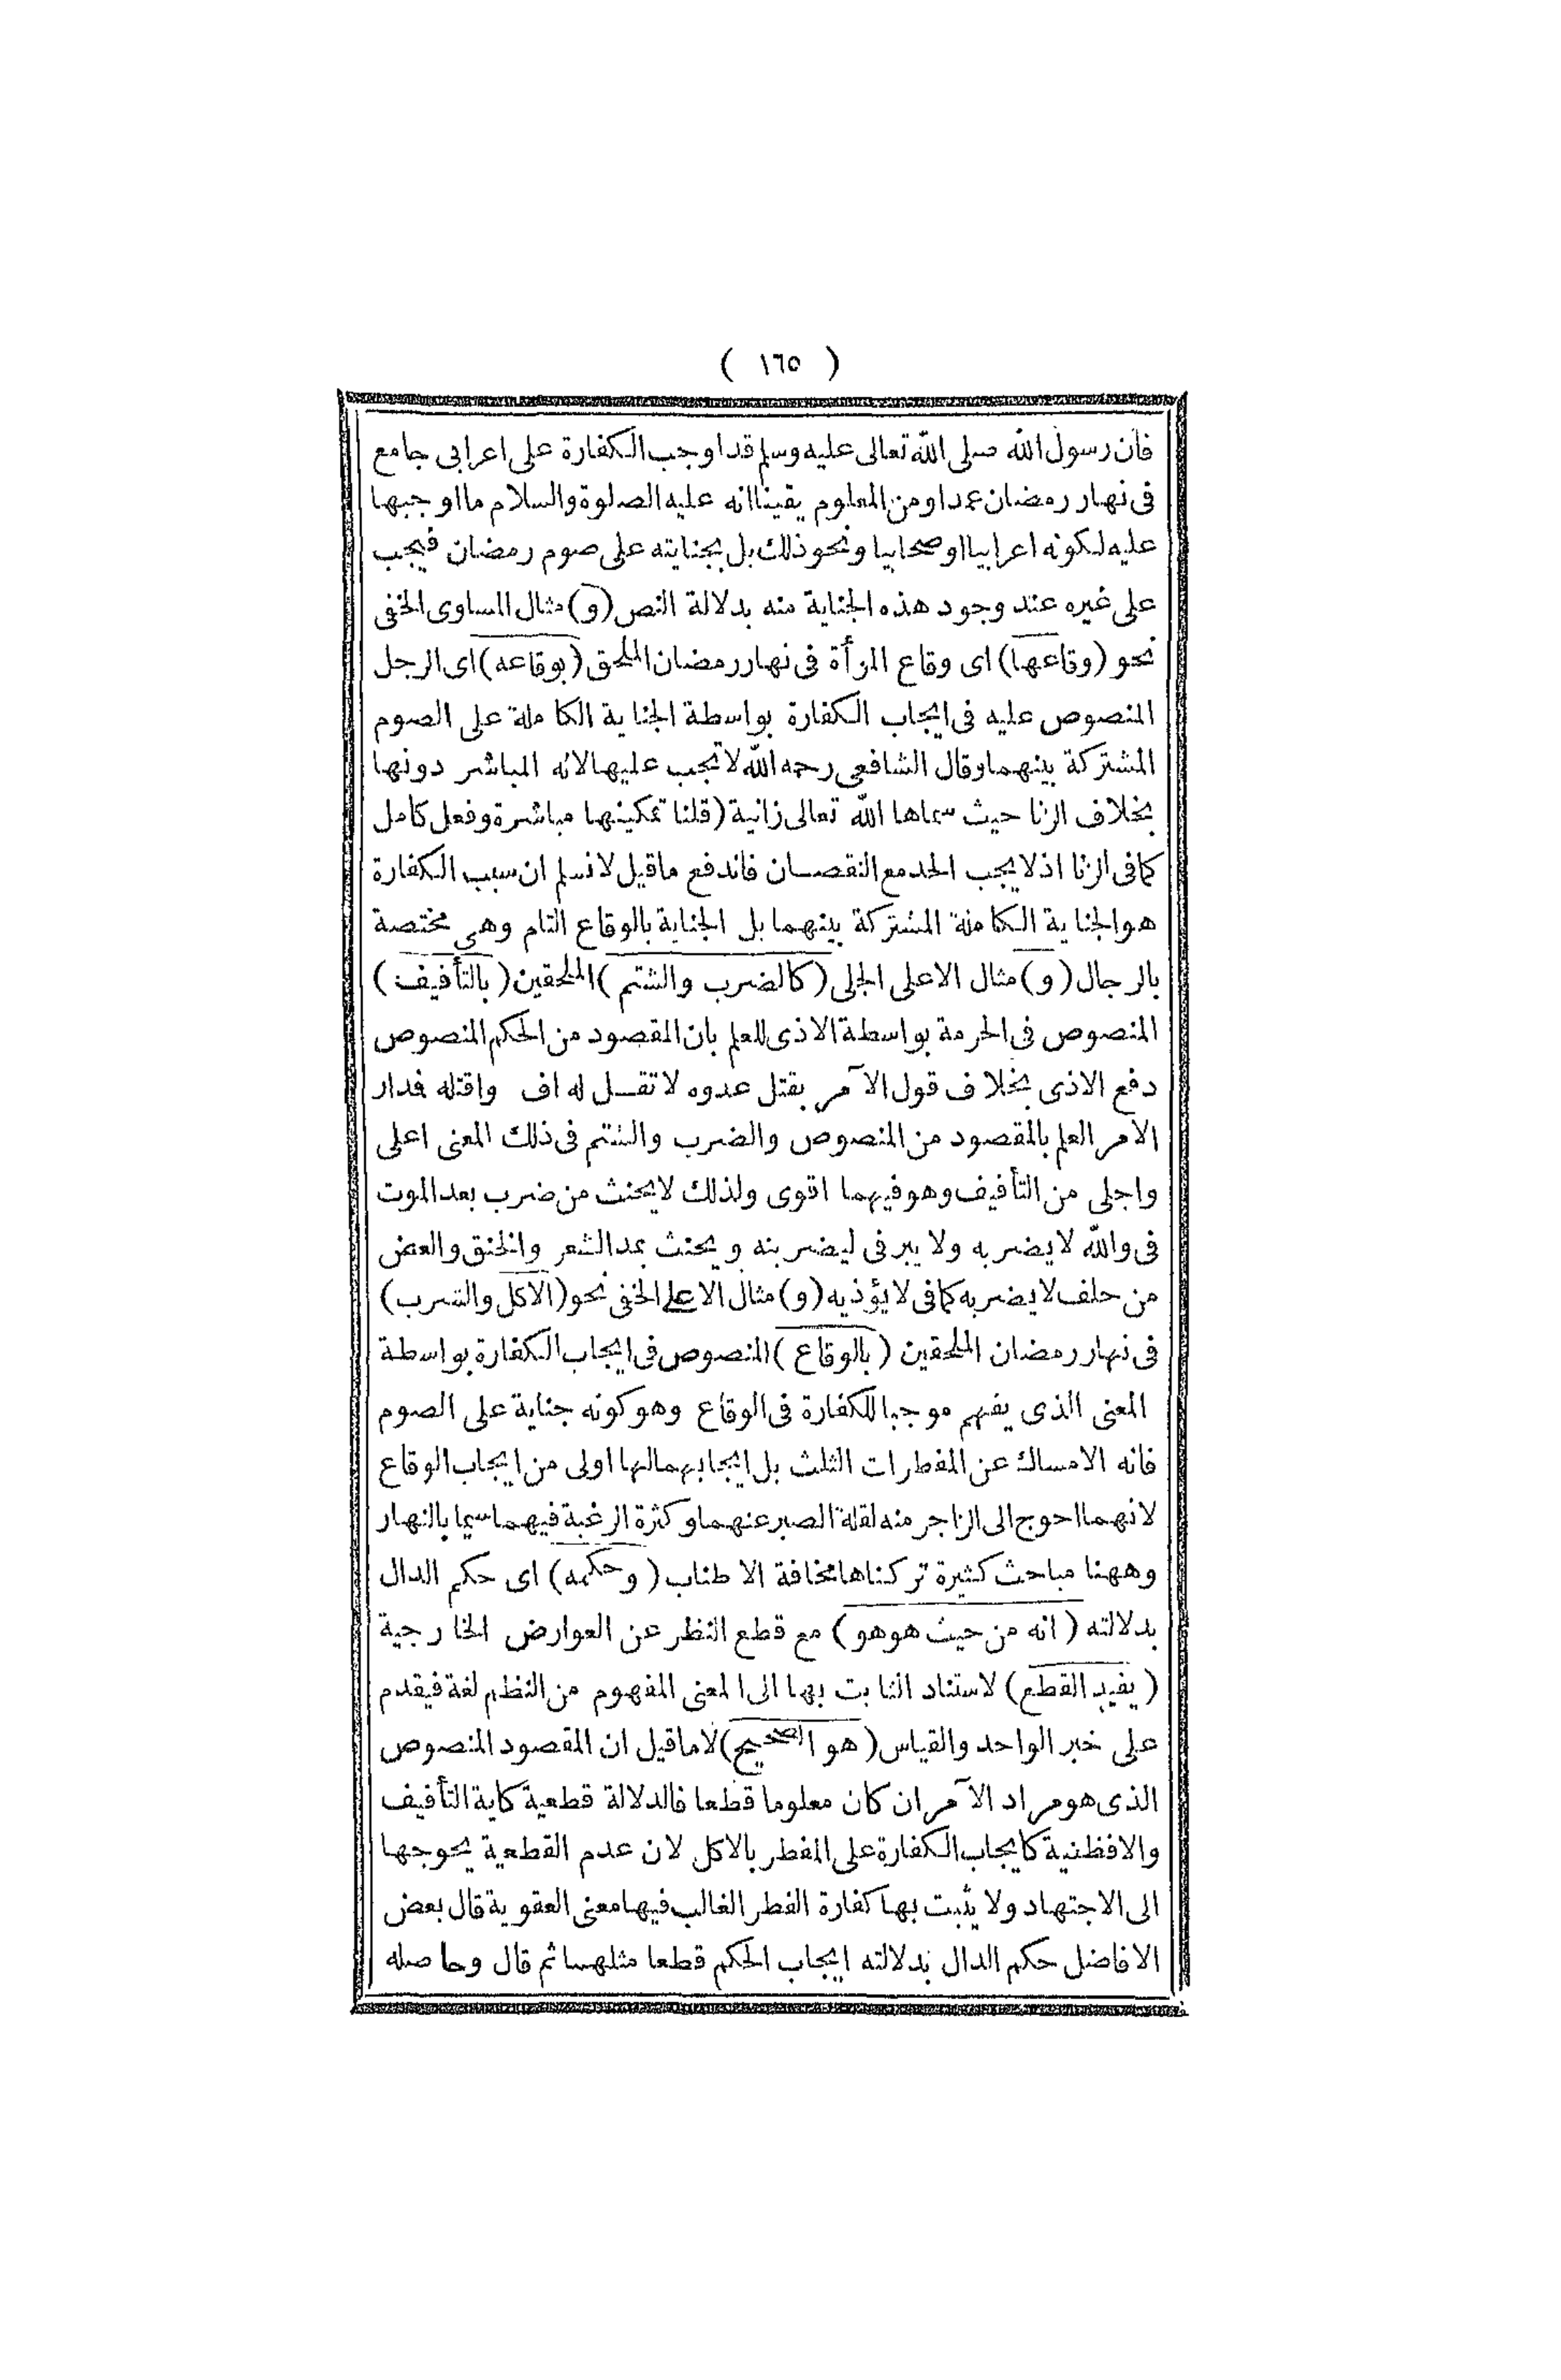 ( ١٦٥ )
فان رسول الله صلى الله تعالى عليه وسلم قد اوجب الكفارة على اعرابى جامع
فى نهار رمضان عمدا ومن المعلوم يقينا انه عليه الصلوة والسلام ما اوجبها
عليه لكونه اعرابيا او صحابيا ونحو ذلك بل بجنايته على صوم رمضان فيجب
على غيره عند وجود هذه الجناية منه بدلالة النص (و) مثال المساوى الخفى
نحو (وقاعها) اى وقاع المرأة فى نهار رمضان الملحق (بوقاعه) اى الرجل
المنصوص عليه فى ايجاب الكفارة بواسطة الجناية الكاملة على الصوم
المشتركة بينهما وقال الشافعى رحمه الله لا تجب عليها لانه المباشر دونها
بخلاف الزنا حيث سماها الله تعالى زانية (قلنا تمكينها مباشرة وفعل كامل
كما فى الزنا اذ لا يجب الحد مع النقصان فاندفع ما قيل لا نسلم ان سبب الكفارة
هو الجناية الكاملة المشتركة بينهما بل الجناية بالوقاع التام وهى مختصة
بالرجال (و) مثال الاعلى الجلى (كالضرب والشتم) الملحقين (بالتأفيف)
المنصوص فى الحرمة بواسطة الاذى للعلم بان المقصود من الحكم المنصوص
دفع الاذى بخلاف قول الآمر بقتل عدوه لا تقل له اف واقتله فدار
الامر العلم بالمقصود من المنصوص والضرب والشتم فى ذلك المعنى اعلى
واجلى من التأفيف وهو فيهما اقوى ولذلك لا يحنث من ضرب بعد الموت
فى والله لا يضربه ولا يبر فى ليضربنه ويحنث بمد الشعر والخنق والعض
من حلف لا يضربه كما فى لا يؤذيه (و) مثال الاعلى الخفى نحو (الاكل والشرب)
فى نهار رمضان الملحقين (بالوقاع) المنصوص فى ايجاب الكفارة بواسطة
المعنى الذى يفهم موجبا للكفارة فى الوقاع وهو كونه جناية على الصوم
فانه الامساك عن المفطرات الثلث بل ايجابهما لها اولى من ايجاب الوقاع
لانهما احوج الى الزاجر منه لقلة الصبر عنهما وكثرة الرغبة فيهما سيما بالنهار
وههنا مباحث كثيرة تركناها مخافة الاطناب (وحكمه) اى حكم الدال
بدلالته (انه من حيث هو هو) مع قطع النظر عن العوارض الخارجية
(يفيد القطع) لاستناد الثابت بها الى المعنى المفهوم من النظم لغة فيقدم
على خبر الواحد والقياس (هو الصحيح) لا ما قيل ان المقصود المنصوص
الذى هو مراد الآمر ان كان معلوما قطعا فالدلالة قطعية كاية التأفيف
والا فظنية كايجاب الكفارة على المفطر بالاكل لان عدم القطعية يحوجها
الى الاجتهاد ولا يثبت بها كفارة الفطر الغالب فيها معنى العقوبة قال بعض
الافاضل حكم الدال بدلالته ايجاب الحكم قطعا مثلهما ثم قال وحاصله